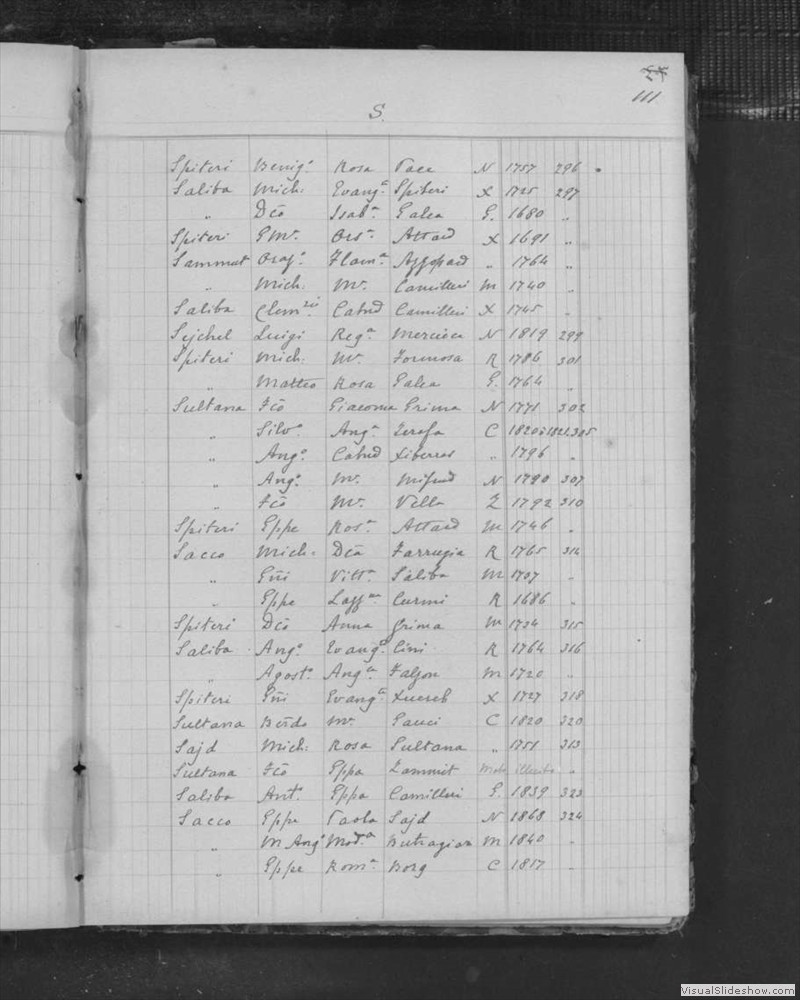 111
S.
Spiteri Benig.º Rosa Pace N 1757 296
Saliba Mich: Evang.ª Spiteri X 1725 297
„ Dcō Isab.ª Galea G. 1680 „
Spiteri Gio M.ª Ors.ª Attard X 1691 „
Sammut Oraz.º Flam.ª Azzopard „ 1764 „
„ Mich: M.ª Camilleri M 1740 „
Saliba Clem. Catnd Camilleri X 1745 „
Sejchel Luigi Reg.ª Mercieca N 1819 299
Spiteri Mich: M.ª Formosa R 1786 301
„ Matteo Rosa Galea G. 1764 „
Sultana Fcō Giacoma Grima N 1771 302
„ Silv.º Ang.ª Zerafa C 1820 1821.305
„ Ang.º Catnd Xiberras „ 1796 „
„ Ang.º M.ª Mifsud N 1790 307
„ Fcō M.ª Vella Z 1792 310
Spiteri Gppe Ros.ª Attard M 1746 „
Sacco Mich: Dcā Farrugia R 1765 314
„ Gñi Vitt.ª Saliba M 1707 „
„ Gppe Lazz.ª Curmi R 1686 „
Spiteri Dcō Anna Grima M 1734 315
Saliba Ang.º Evang.ª Cini R 1764 316
„ Agost.º Ang.ª Falzon M 1720 „
Spiteri Gñi Evang.ª Xuereb X 1727 318
Sultana Berdo M.ª Gauci C 1820 320
Sajd Mich: Rosa Sultana „ 1751 313
Sultana Fcō Gppa Zammit „
Saliba Ant.º Gppa Camilleri G. 1839 323
Sacco Gppe Paola Sajd N 1868 324
„ M Ang.º Mad.ª Buttagian M 1840 „
„ Gppe Rom.ª Borg C 1817 „
VisualSlideshow.com